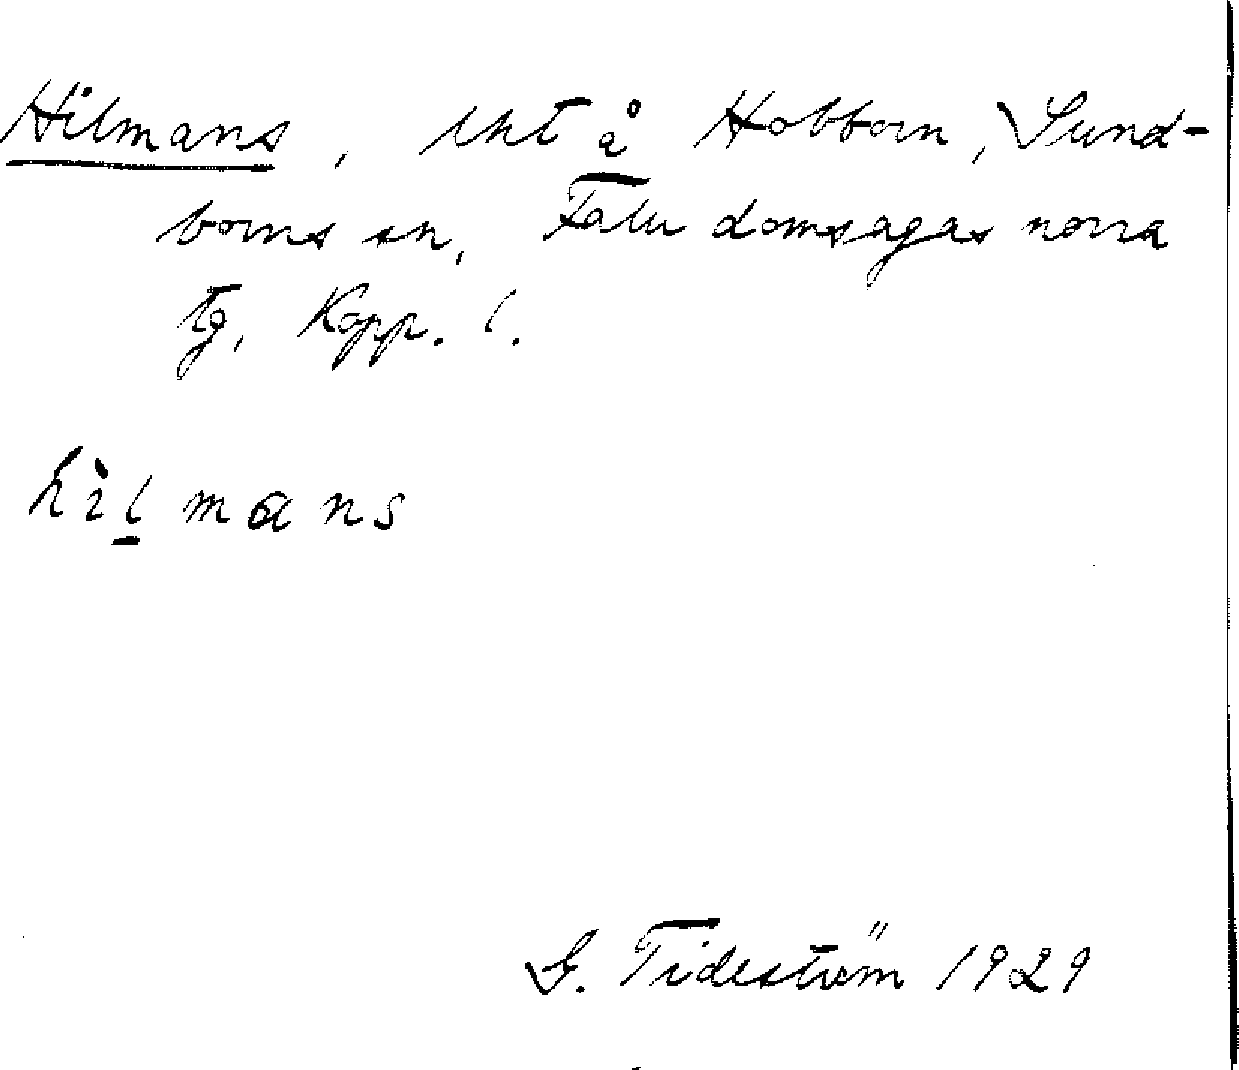 Hilmans, lht å Hobborn, Sund-
borns sn, Falu domsagas norra
tg, Kopp. l.
hìl mans
G. Tideström 1929